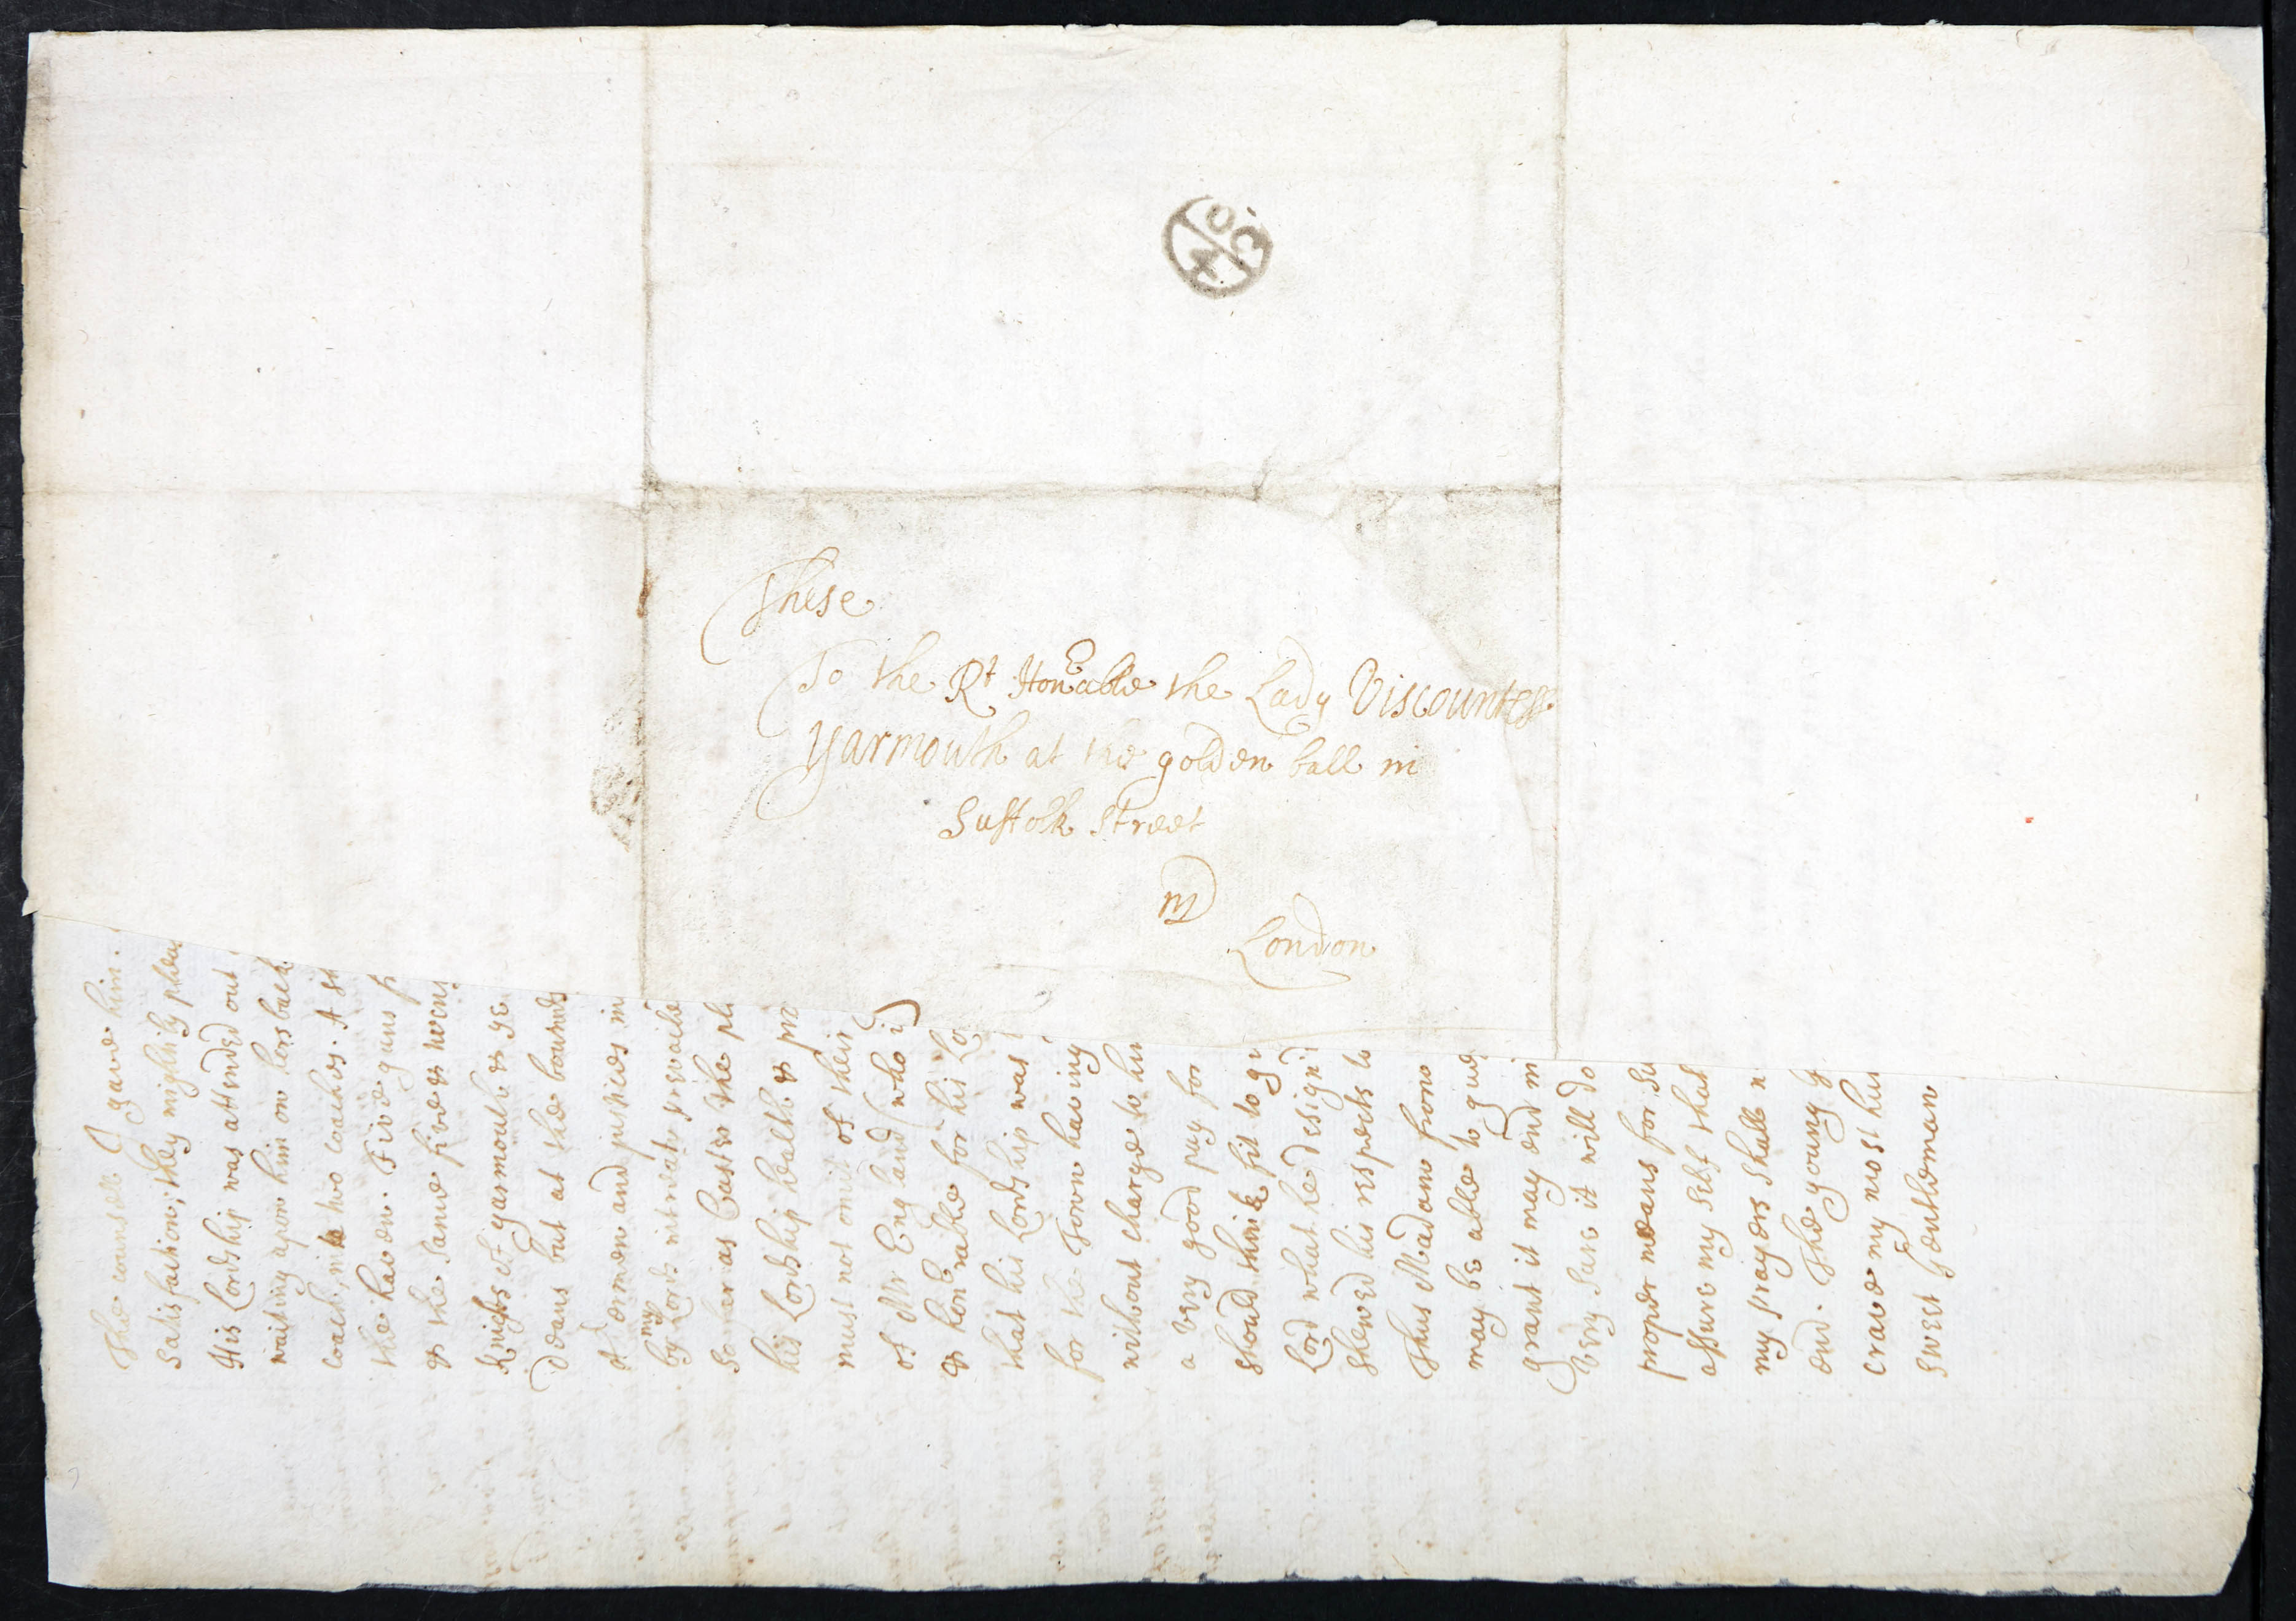 These
To the Rt Honeable the Lady Viscountess
Yarmouth at the golden ball in
Suffolk Street
in
London
OC
4
The counsell I gave him.
satisfaction; they mightily pleas
His Lordship was attended out
waiting upon him on horsback
coach, into two coaches. A
the haven. Five guns
& the same five & twen
Knights of Yarmouth & ge
deans but at the bownds
Aldermen and justices in
by my Lords intreaty prevaile
so her as Caster the pl
his Lordship health & pro
must not omit of their
of Mr England (who i
& honerable for his Lo
that his Lordship was
for the Town having
without charge to him
a very good pay for
should think fit to gi
Lord what he design'd
shewed his respects to
Thus Madam from
may be able to gues
grant it may end in
very sure it will do
proper means for su
assure my self that
my prayers shall n
end. The young g
crave my most hum
sweet Gentleman